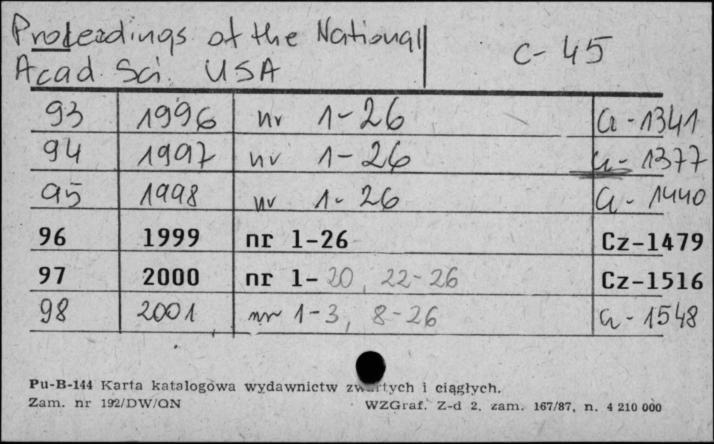 Proceedings of the National
Acad. Sci. USA
C-45
93 1996 nr 1-26 Cz-1341
94 1997 nr 1-26 Cz-1377
95 1998 nr 1-26 Cz-1440
96 1999 nr 1-26 Cz-1479
97 2000 nr 1-20, 22-26 Cz-1516
98 2001 nr 1-3, 8-26 Cz-1548
Pu-B-144 Karta katalogowa wydawnictw zwartych i ciągłych.
Zam. nr 192/DW/ON WZGraf. Z-d 2, zam. 167/87, n. 4 210 000